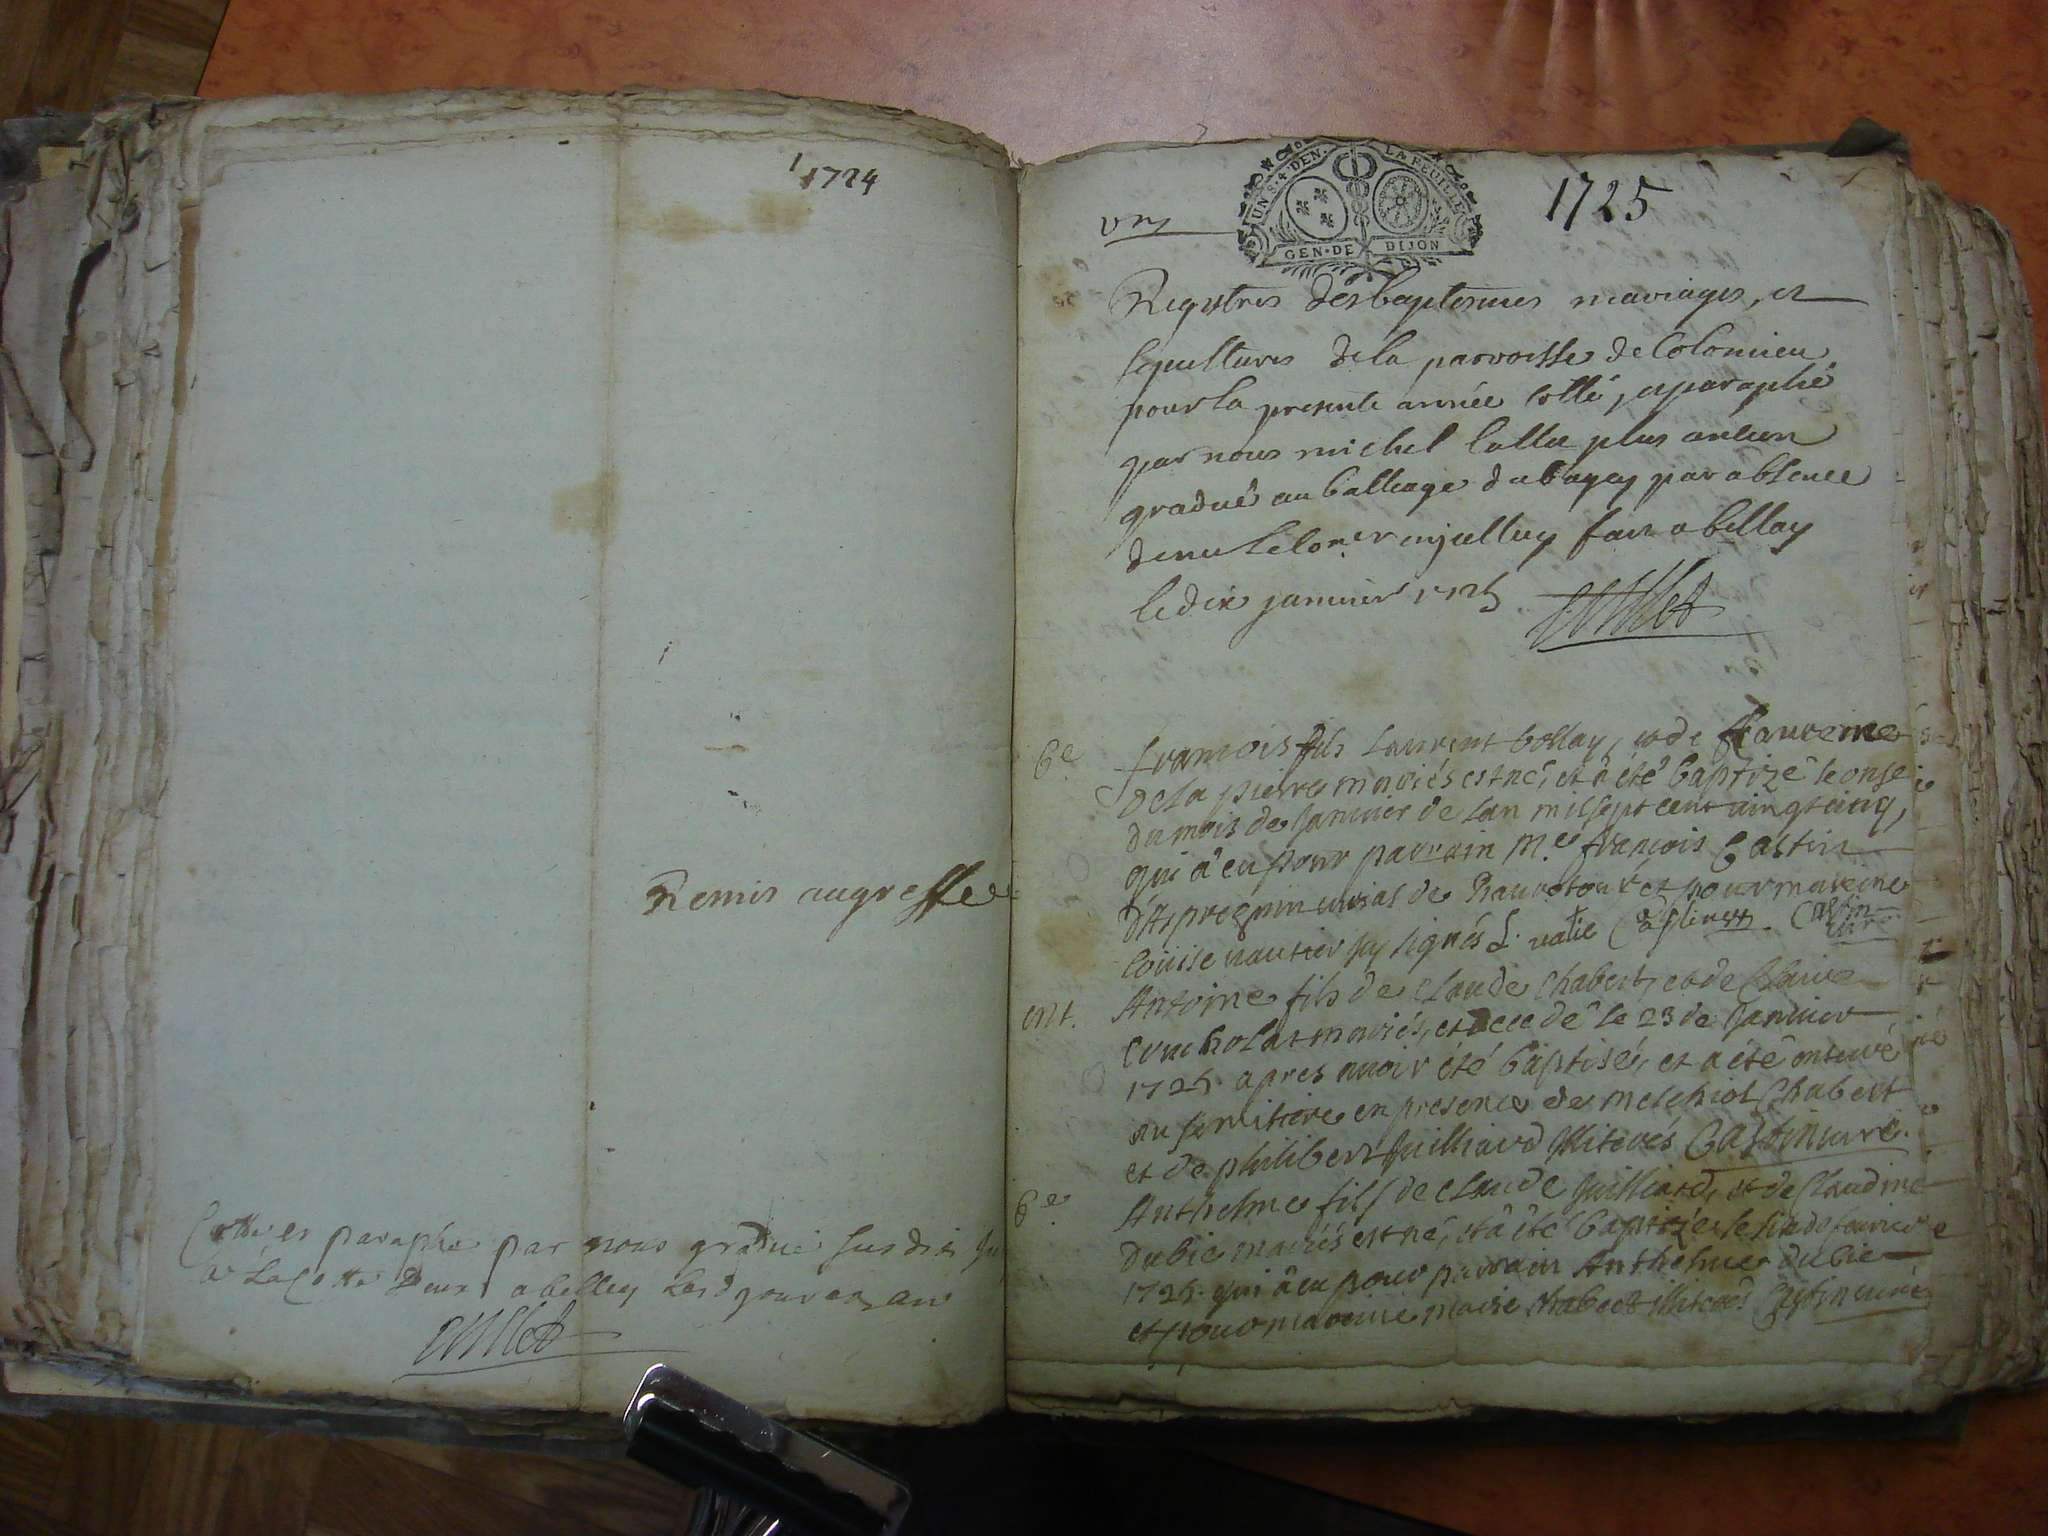 1724
Remis au greffe
Cotté et paraphé par nous gradué susdit
a la cotte deux a belley les d jour et an
1725
UN S. 4 DEN. LA FEUILLE
GEN. DE DIJON
Registres des baptesmes mariages, et
sepultures de la parroisse de Colomieu
pour la presente année cotté, et paraphé
par nous michel plus ancien
gradué au balliage du bugey par absence
fait a bellay
le dix janvier 1725
Be
francois fils laurent bollay, et de
de la pierre mariés est né, et â été baptizé le onze
du mois de janvier de lan mil sept cent vingt cinq,
qui â eu pour parrain Me francois Castin
et pour mareine
Louise vautier sy signés
ent.
Antoine fils de claude chabert, et de Claire
mariés, et decedê le 23 de janvier
1725. apres avoir été baptisé, et a étê enterré
au semitiere en presence de melchiol Chabert
et de philibert juilliard illiterés Castin curé.
Be
Anthelme fils de claude juilliard, et de claudine
dubie mariés est né, et â êté baptizé le de fevrier
1725. qui â eu pour parrain Anthelme dubie
et pour mareine marie chabert illiterés Castin curé